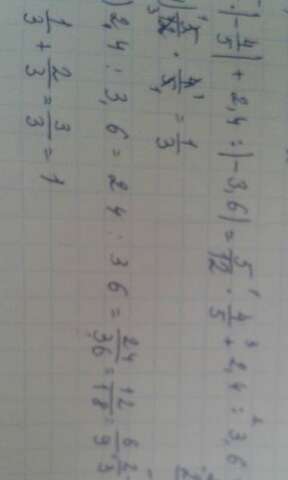 · |-4/5| + 2,4 : |-3,6| = 5/12 · 4/5 + 2,4 : 3,6
) 5/12 · 4/5 = 1/3
) 2,4 : 3,6 = 24 : 36 = 24/36 = 12/18 = 6/9 = 2/3
1/3 + 2/3 = 3/3 = 1